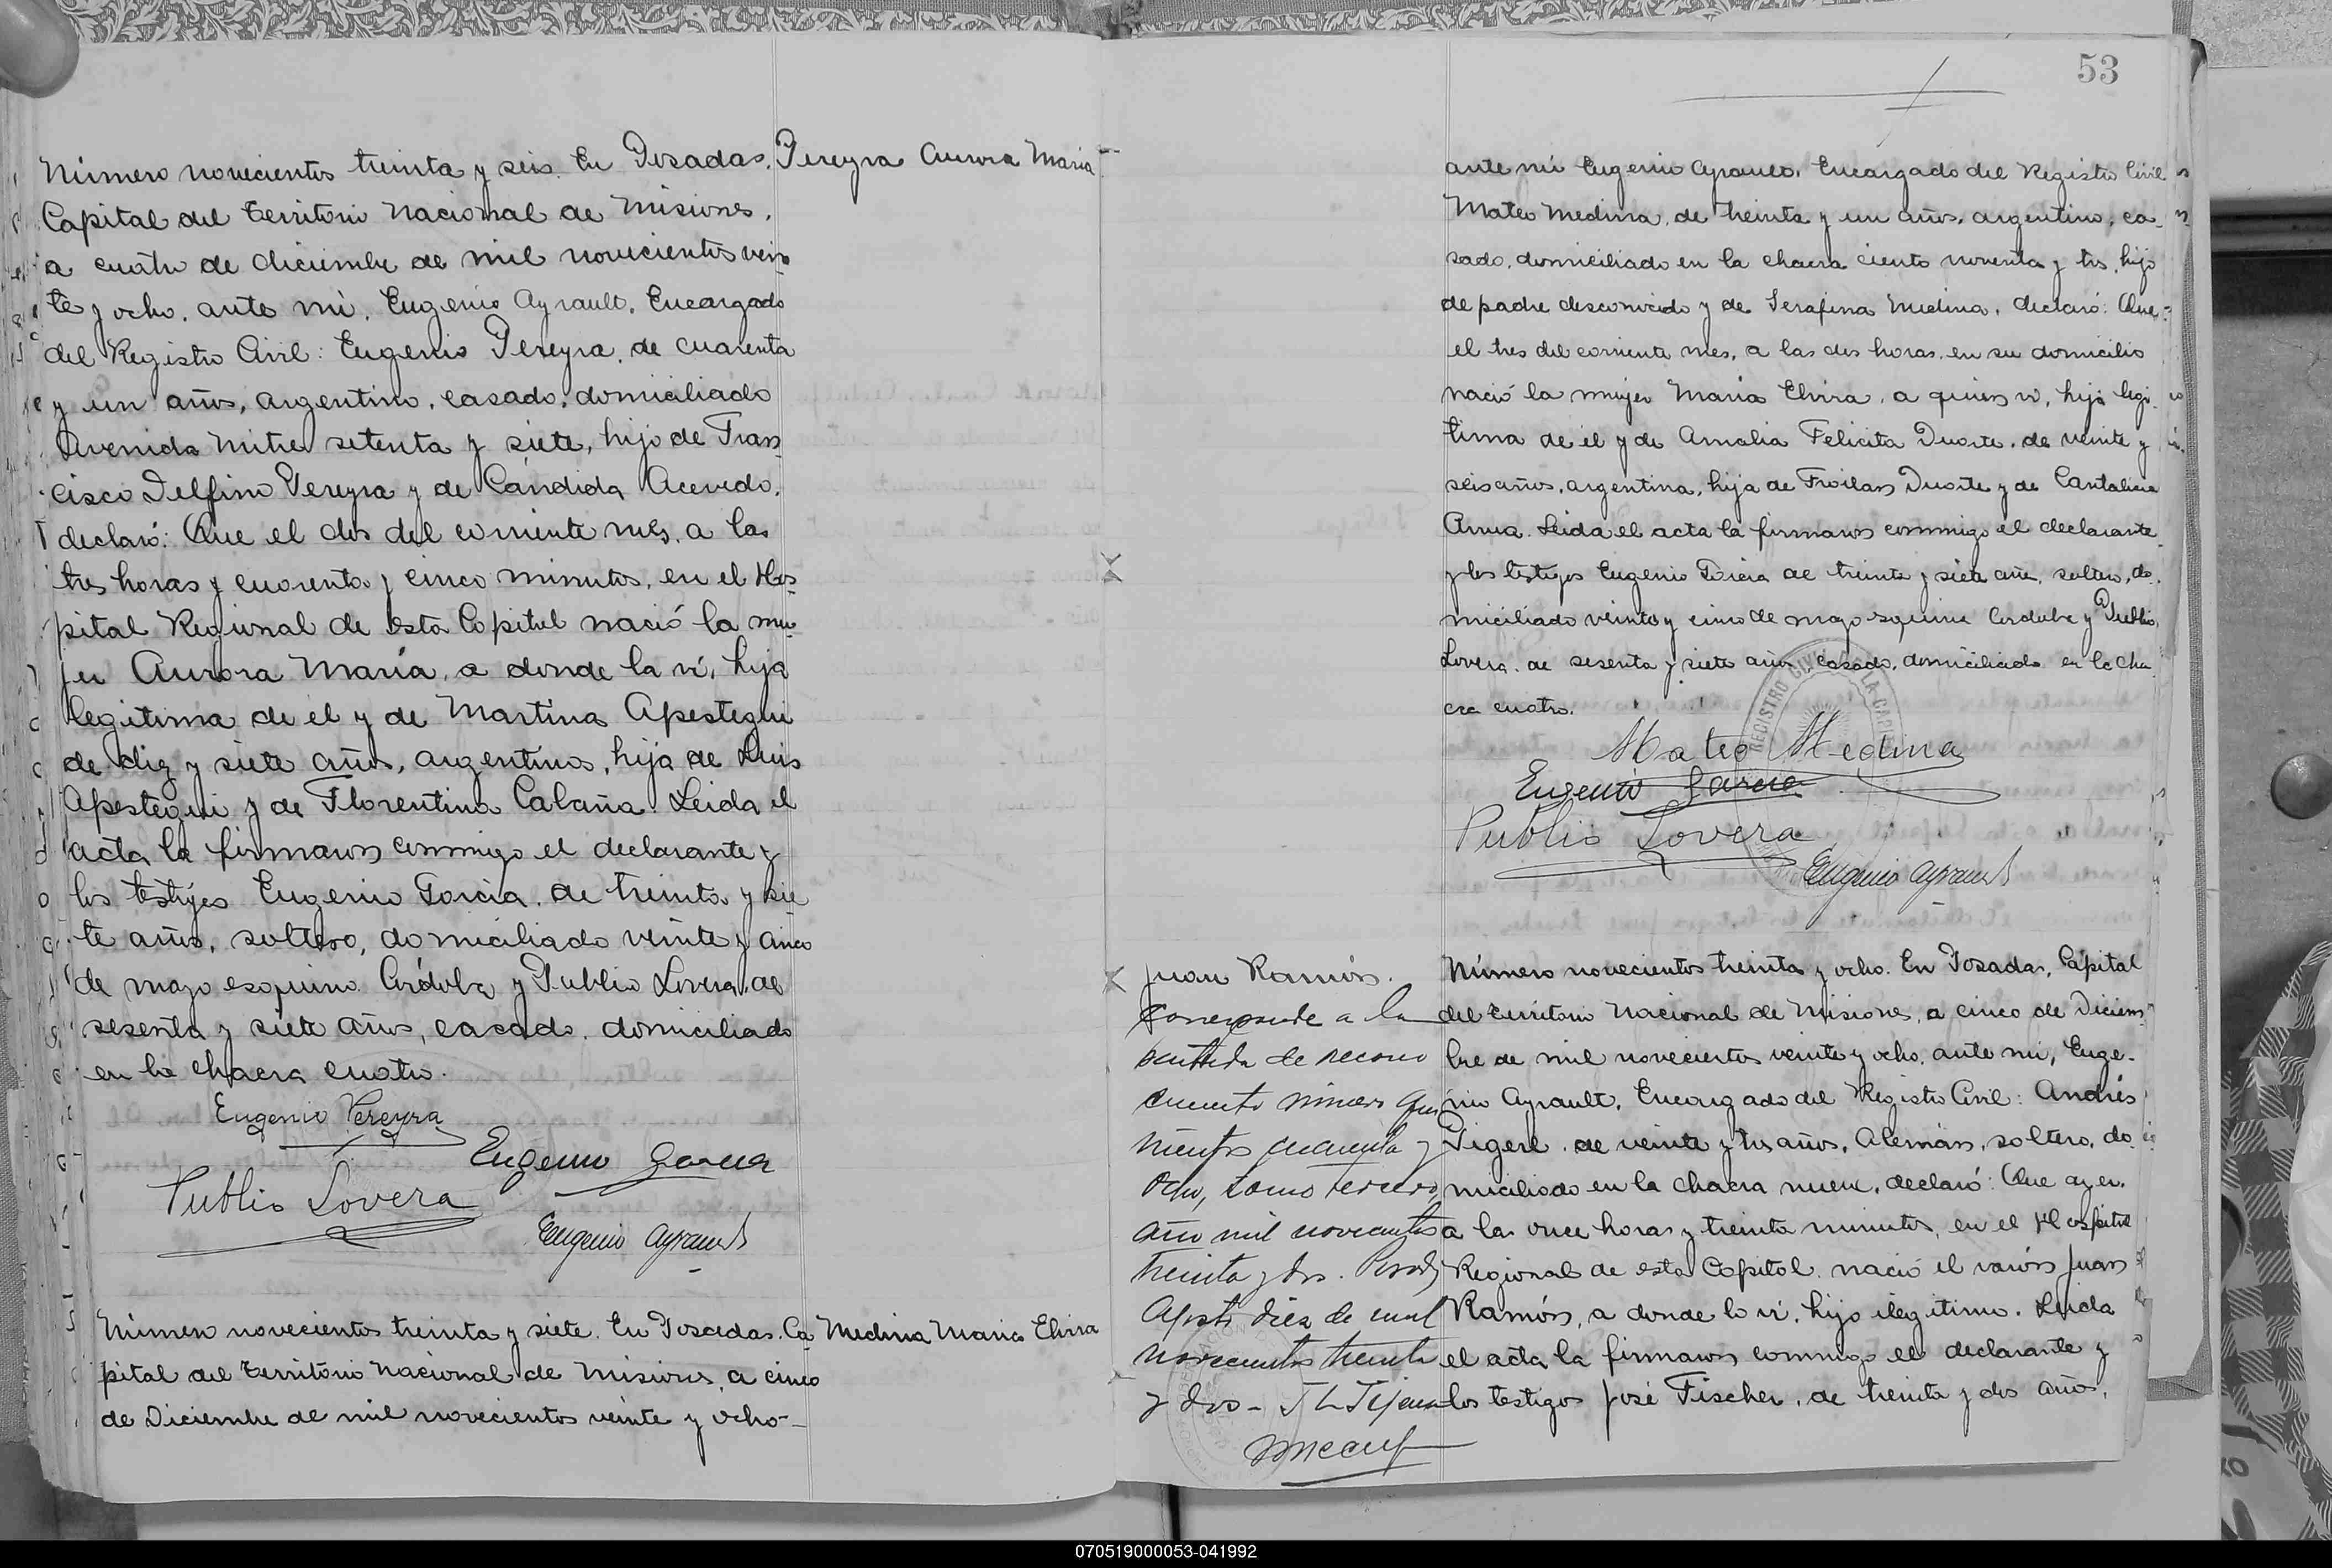 Número novecientos treinta y seis. En Posadas,
Pereyra Aurora María
Capital del territorio nacional de Misiones,
a cuatro de diciembre de mil novecientos vein
te y ocho, ante mí, Eugenio Ayrault, Encargado
del Registro Civil: Eugenio Pereyra, de cuarenta
y un años, argentino, casado, domiciliado
Avenida Mitre setenta y siete, hijo de Fran
cisco Delfino Pereyra y de Cándida Acevedo,
declaró: Que el dos del corriente mes, a las
tres horas y cuarenta y cinco minutos, en el Hos
pital Regional de esta Capital nació la mu
jer Aurora María, a donde la ví, hija
legítima de el y de Martina Apestegui
de diez y siete años, argentina, hija de Luis
Apestegui y de Florentina Cabaña. Leida el
acta la firmaron conmigo el declarante y
los testigos Eugenio Garcia, de treinta y sie
te años, soltero, domiciliado veinte y cinco
de mayo esquina Córdoba y Publio Lovera, de
sesenta y siete años, casado, domiciliado
en la chacra cuatro.
Eugenio Pereyra
Eugenio Garcia
Publio Lovera
Eugenio Ayrault
Número novecientos treinta y siete. En Posadas, Ca
Medina María Elvira
pital del territorio nacional de Misiones, a cinco
de Diciembre de mil novecientos veinte y ocho-
53
ante mí Eugenio Ayrault, Encargado del Registro Civil
Mateo Medina, de treinta y un años, argentino, ca-
sado, domiciliado en la chacra ciento noventa y tres, hijo
de padre desconocido y de Serafina Medina, declaró: Que
el tres del corriente mes, a las dos horas, en su domicilio
nació la mujer María Elvira, a quien ví, hija legí-
tima de él y de Amalia Felicita Duarte, de veinte y
seis años, argentina, hija de Froilan Duarte y de Cantalicia
Leida el acta la firmaron conmigo el declarante
y los testigos Eugenio Garcia de treinta y siete años, soltero, do-
miciliado veinte y cinco de mayo esquina Cordoba y Publio
Lovera, de sesenta y siete años, casado, domiciliado en la cha
cra cuatro.
REGISTRO CIVIL LA CA
Mateo Medina
Eugenio Garcia
Publio Lovera
Eugenio Ayrault
Juan Ramón.
Corresponde a la
partida de recono
cimiento número qui
nientos cuarenta y
ocho, tomo tercero,
año mil novecientos
treinta y dos. Posadas,
Agosto diez de mil
novecientos treinta
y dos -
Número novecientos treinta y ocho. En Posadas, Capital
del territorio nacional de Misiones, a cinco de Diciem-
bre de mil novecientos veinte y ocho, ante mi, Euge-
nio Ayrault, Encargado del Registro Civil: Andrés
Pigerl, de veinte y tres años, Alemán, soltero, do
miciliado en la chacra nueve, declaró: Que ayer,
a las once horas y treinta minutos, en el Hospital
Regional de esta Capital, nació el varón Juan
Ramón, a donde lo ví, hijo ilegítimo. Leida
el acta la firmaron conmigo el declarante y
los testigos José Fischer, de treinta y dos años,
070519000053-041992